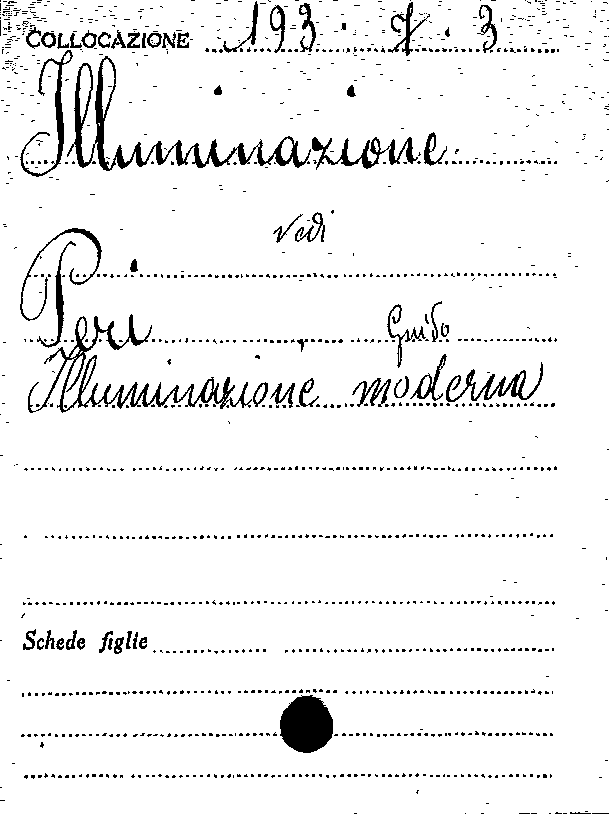 COLLOCAZIONE 193. J. 3
Illuminazione.
vedi
Peri, Guido
Illuminazione moderna
Schede figlie